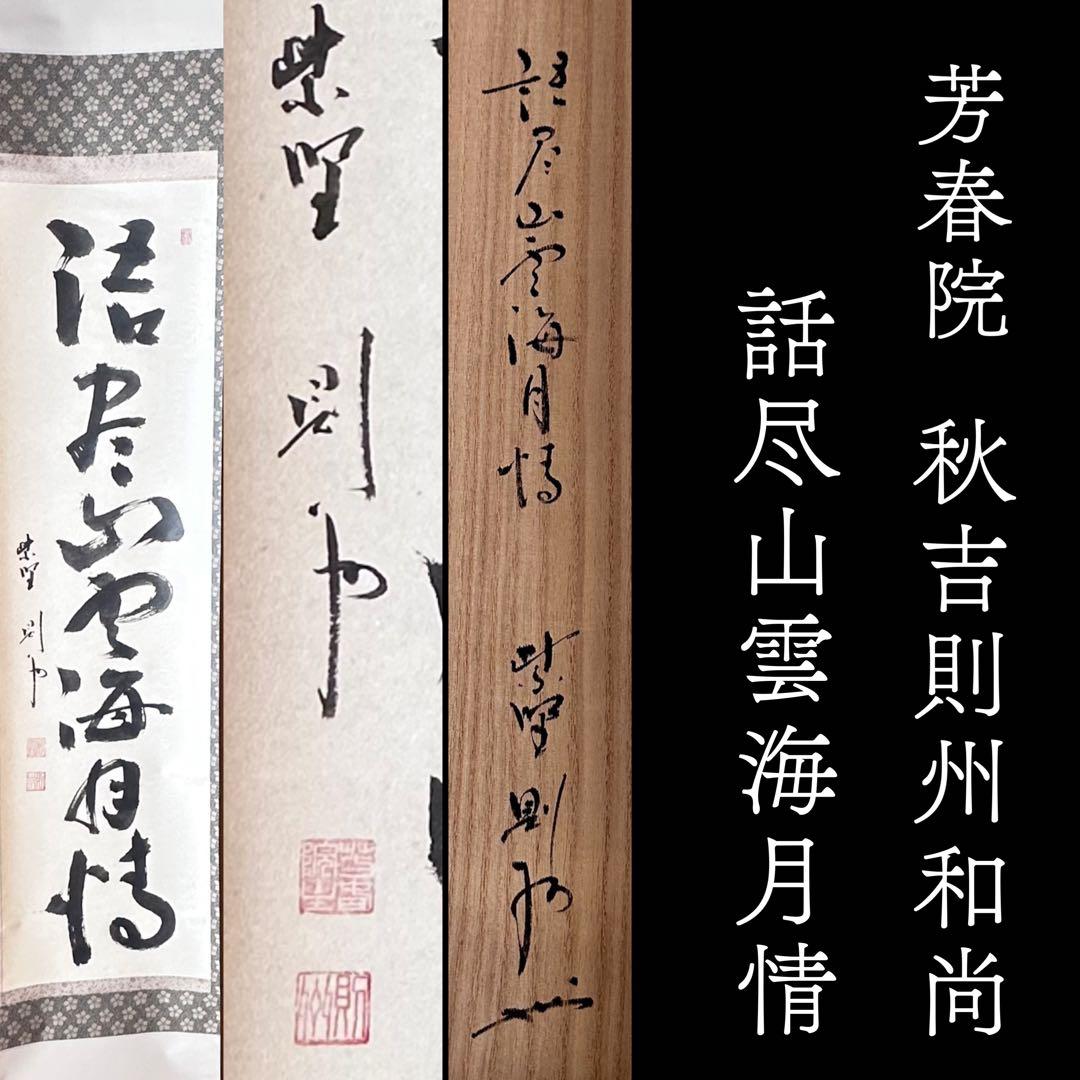 芳春院 秋吉則州和尚
話尽山雲海月情
話尽山雲海月情
紫野 則州
紫野 則州
芳春院主
則州
話尽山雲海月情
紫野 則州